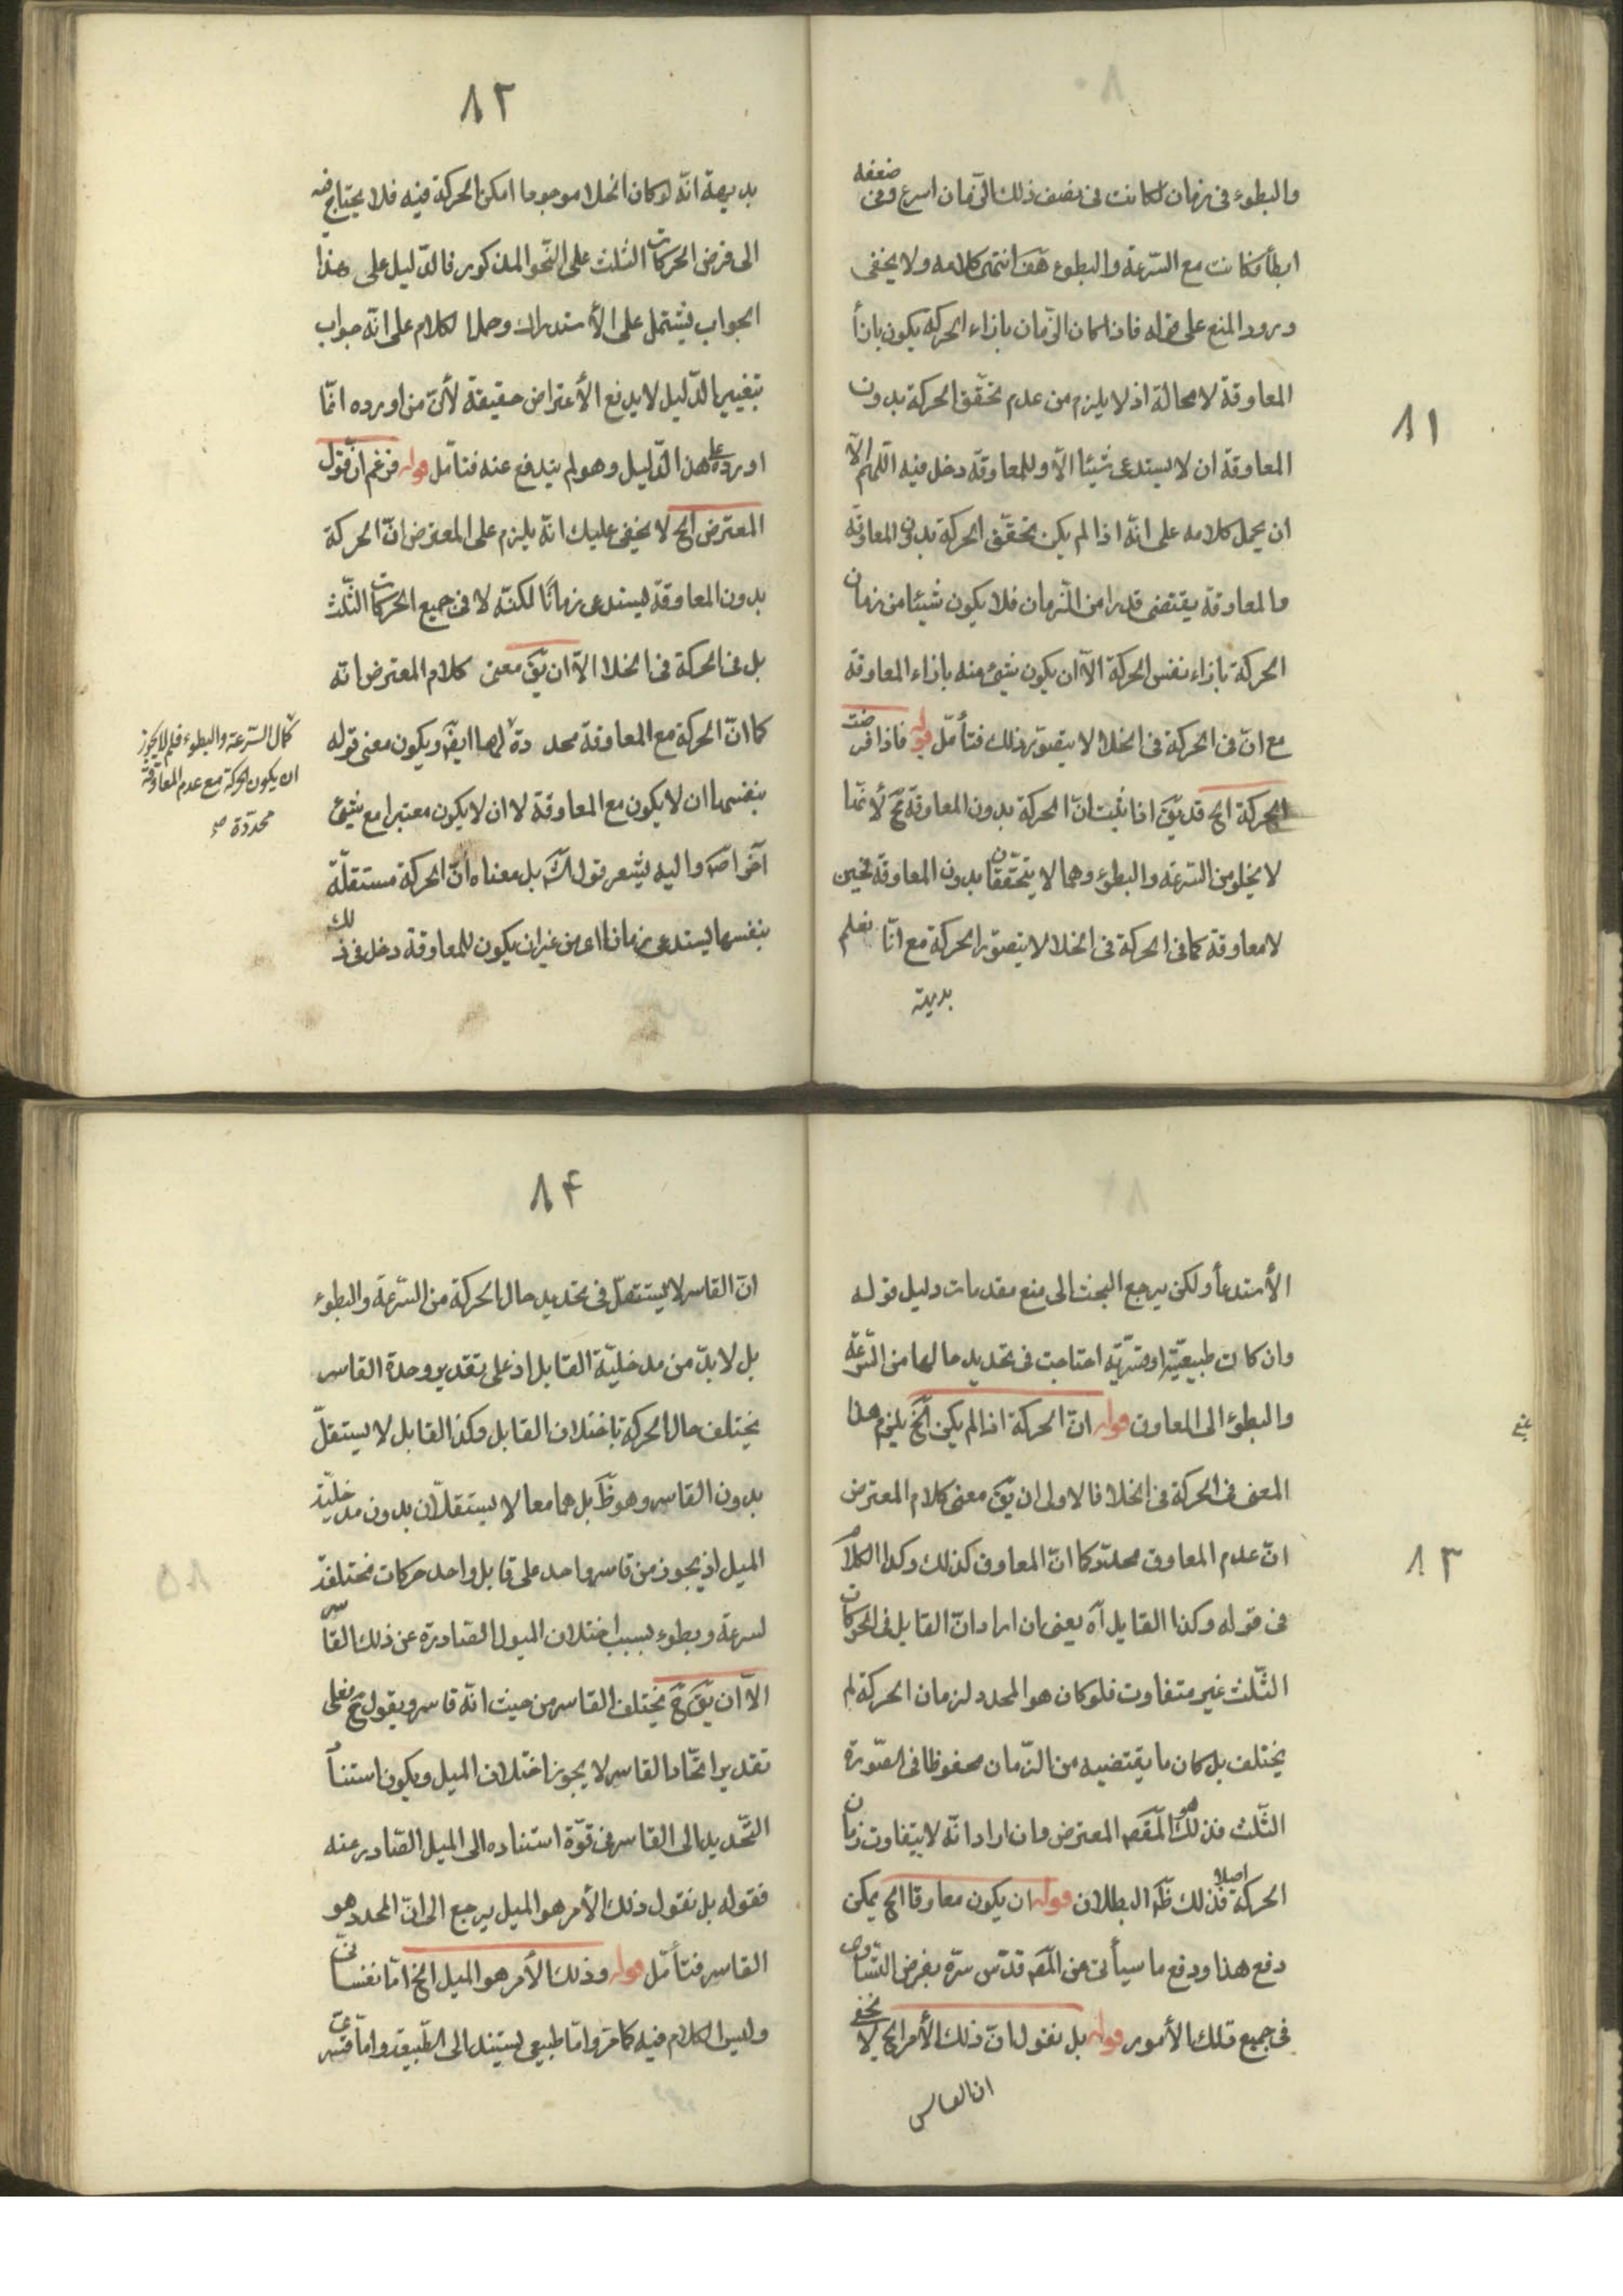 ٨١
والبطوء فى زمان لكانت فى نصف ذلك الزّمان اسرع وفى ضعفه
ابطأ فكانت مع السّرعة والبطوء هف انتهى كلامه ولا يخفى
ورود المنع على قوله فاذا كان الزّمان بازاء الحركة يكون بازأ
المعاوقة لا محالة اذ لا يلزم من عدم تحقّق الحركة بدون
المعاوقة ان لا يستدعى شيئا الّا وللمعاوقة دخل فيه اللّهم الّا
ان يحمل كلامه على انّه اذا لم يكن تحقّق الحركة بدون المعاوقة
والمعاوقة يقتضى قدرا من الزّمان فلا يكون شيئا من زمان
الحركة بازاء نفس الحركة الّا ان يكون شئ منه بازاء المعاوقة
مع انّ فى الحركة فى الخلا لا يتصوّر ذلك فتأمّل قوله فاذا فرضت
الحركة الخ قد يقّ اذا ثبت انّ الحركة بدون المعاوقة مح لأنّها
لا يخلو من السّرعة والبطوء وهما لا يتحقّقان بدون المعاوقة فحين
لا معاوقة كما فى الحركة فى الخلا لا يتصوّر الحركة مع انّا نعلم
بديهة
٨٢
بديهة انّه لو كان الخلا موجودا امكن الحركة فيه فلا يحتاج فيه
الى فرض الحركات الثلث على النّحو المذكور فالدّليل على هذا
الجواب يشتمل على الأستدراك وحمل الكلام على انّه جواب
بتغيير الدّليل لا يدفع الأعتراض حقيقة لأنّ من اورده انّما
اورده على هذا الدّليل وهو لم يندفع عنه فتأمّل قوله فزعم ان قول
المعترض الخ لا يخفى عليك انّه يلزم على المعترض انّ الحركة
بدون المعاوقة يستدعى زمانًا لكنّه لا فى جميع الحركات الثّلث
بل فى الحركة فى الخلا الّا ان يقّ معنى كلام المعترض انّه
كما انّ الحركة مع المعاوقة محددة لهما ايضّ ويكون معنى قوله
بنفسها ان لا يكون مع المعاوقة لا ان لا يكون معتبرا مع شئ
آخر اصّ واليه يشعر قوله بل معناه انّ الحركة مستقلّة
بنفسها يستدعى زمانا اى من غير ان يكون للمعاوقة دخل فى ذلك
كمال السّرعة والبطوء فلم لا يجوز
ان يكون الحركة مع عدم المعاوقة
محدّدة صح
٨٣
الأستدعأ ولكن يرجع البحث الى منع مقدمات دليل قوله
وان كانت طبيعيّة او قسريّة احتاجت فى تحديد حالها من السّرعة
والبطوء الى المعاوق قوله انّ الحركة اذا لم يكن الخ يلزم هذا
المعنى فى الحركة فى الخلا فالاولى ان يقّ معنى كلام المعترض
انّ عدم المعاوق محدّد كما انّ المعاوق كذلك وكذا الكلام
فى قوله وكذا القابل آه يعنى ان اراد انّ القابل فى الحركات
الثّلث غير متفاوت فلو كان هو المحدد لزمان الحركة لم
يختلف بل كان ما يقتضيه من الزّمان محفوظا فى الصّورة
الثّلث فذلك هو المّقصّ المعترض وان اراد انّه لا يتفاوت زمان
الحركة اصلا فذلك ظّ البطلان قوله ان يكون معاوقا الخ يمكن
دفع هذا ودفع ما سيأتى من المّص قدّس سرّه بفرض التّساوى
فى جميع تلك الأمور قوله بل نقول انّ ذلك الأمر الخ لا يخفى
ان القاسر
٨٤
انّ القاسر لا يستقلّ فى تحديد حال الحركة من السّرعة والبطوء
بل لا بدّ من مدخليّة القابل اذ على تقدير وحدة القاسر
يختلف حال الحركة باختلاف القابل وكذا القابل لا يستقلّ
بدون القاسر وهو ظّ بل هما معا لا يستقلّان بدون مدخليّة
الميل اذ يجوز من قاسر واحد على قابل واحد حركات مختلفة
لسرعة وبطوء بسبب اختلاف الميول الصّادرة عن ذلك القاسر
الّا ان يقّ حّ يختلف القاسر من حيث انّه قاسر ويقول حّ فعلى
تقدير اتّحاد القاسر لا يجوز اختلاف الميل ويكون استنأ
التّحديد الى القاسر فى قوّة استناده الى الميل الصّادر عنه
فقوله بل نقول ذلك الأمر هو الميل يرجع الى انّ المحدد هو
القاسر فتأمّل قوله وذلك الأمر هو الميل الخ امّا نفسانىّ
وليس الكلام فيه كما مرّ وامّا طبيعى يستند الى الطّبيعة وامّا قسرىّ